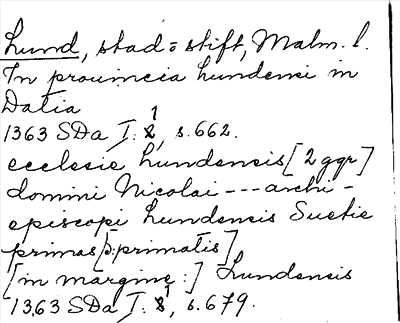 Lund, stad o stift, Malm. l.
In prouincia lundensi in
Datia
1363 SDa I: 1, s. 662.
ecclesie lundensis [2 ggr]
domini Nicolai --- archi-
episcopi lundensis Suetie
primas [ɔ: primatis]
[in margine:] Lundensis
1363 SDa I: 1, s. 679.